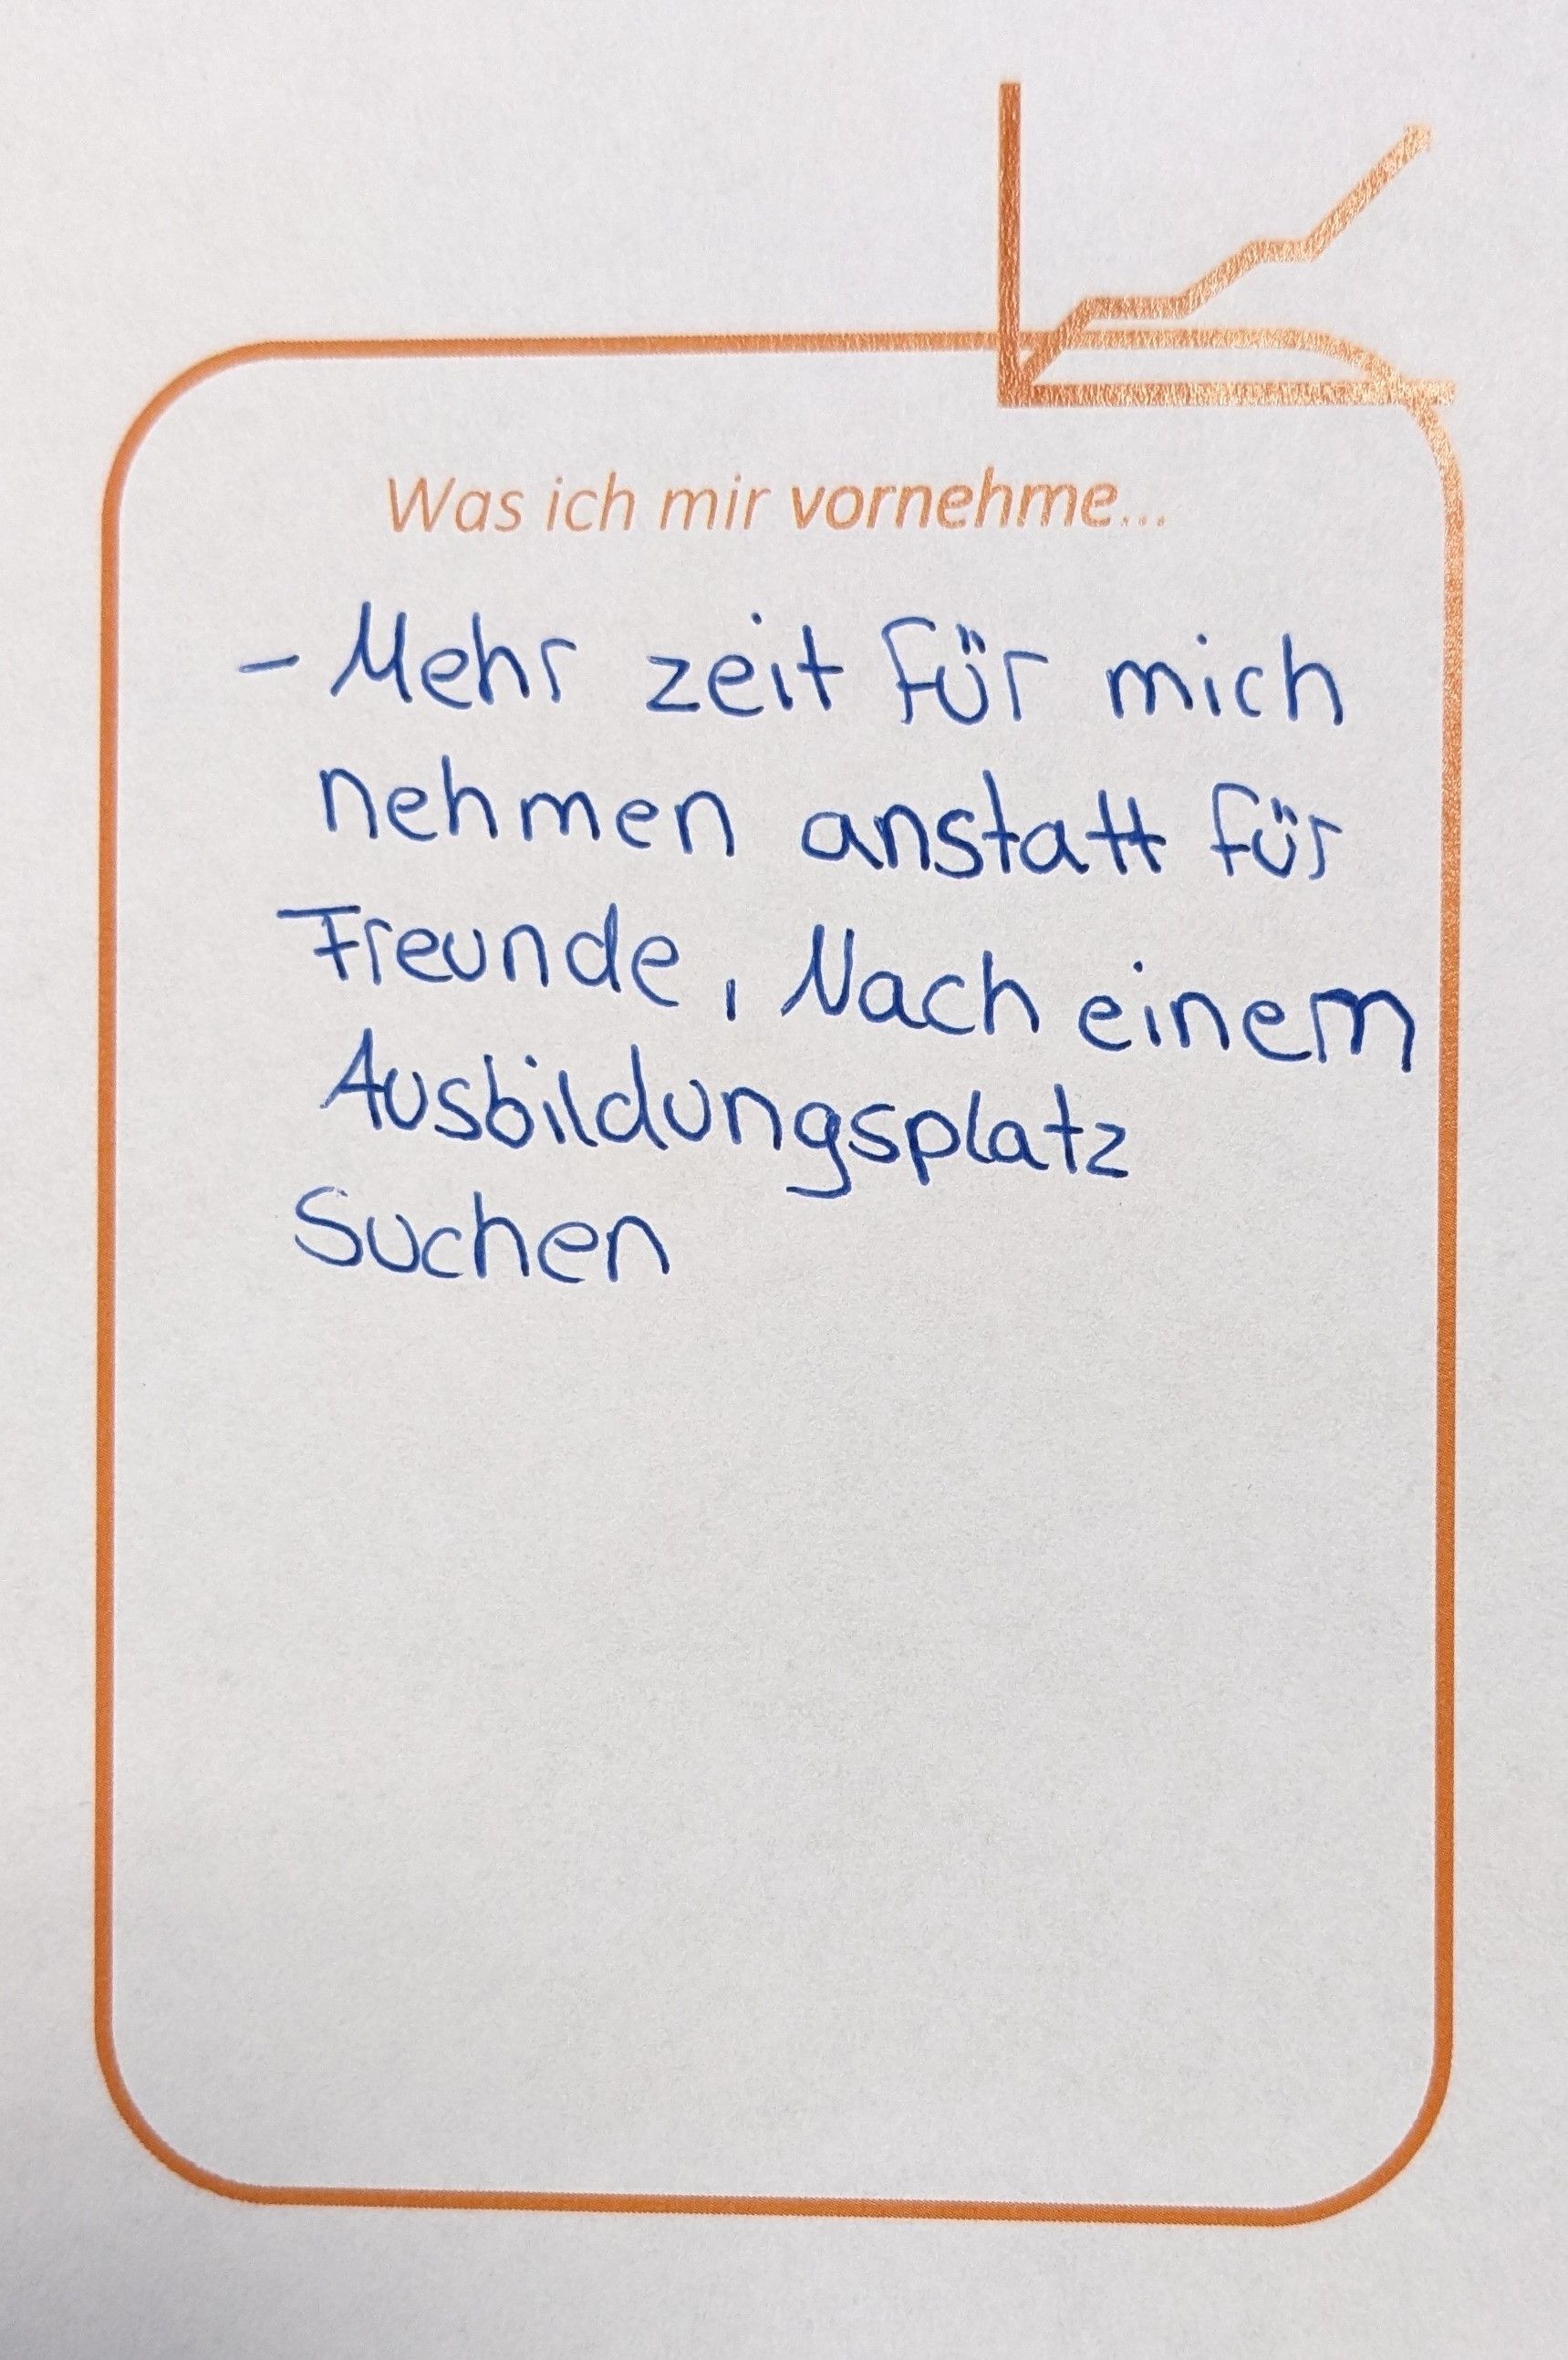 Was ich mir vornehme...
- Mehr zeit für mich
nehmen anstatt für
Freunde, Nach einem
Ausbildungsplatz
Suchen